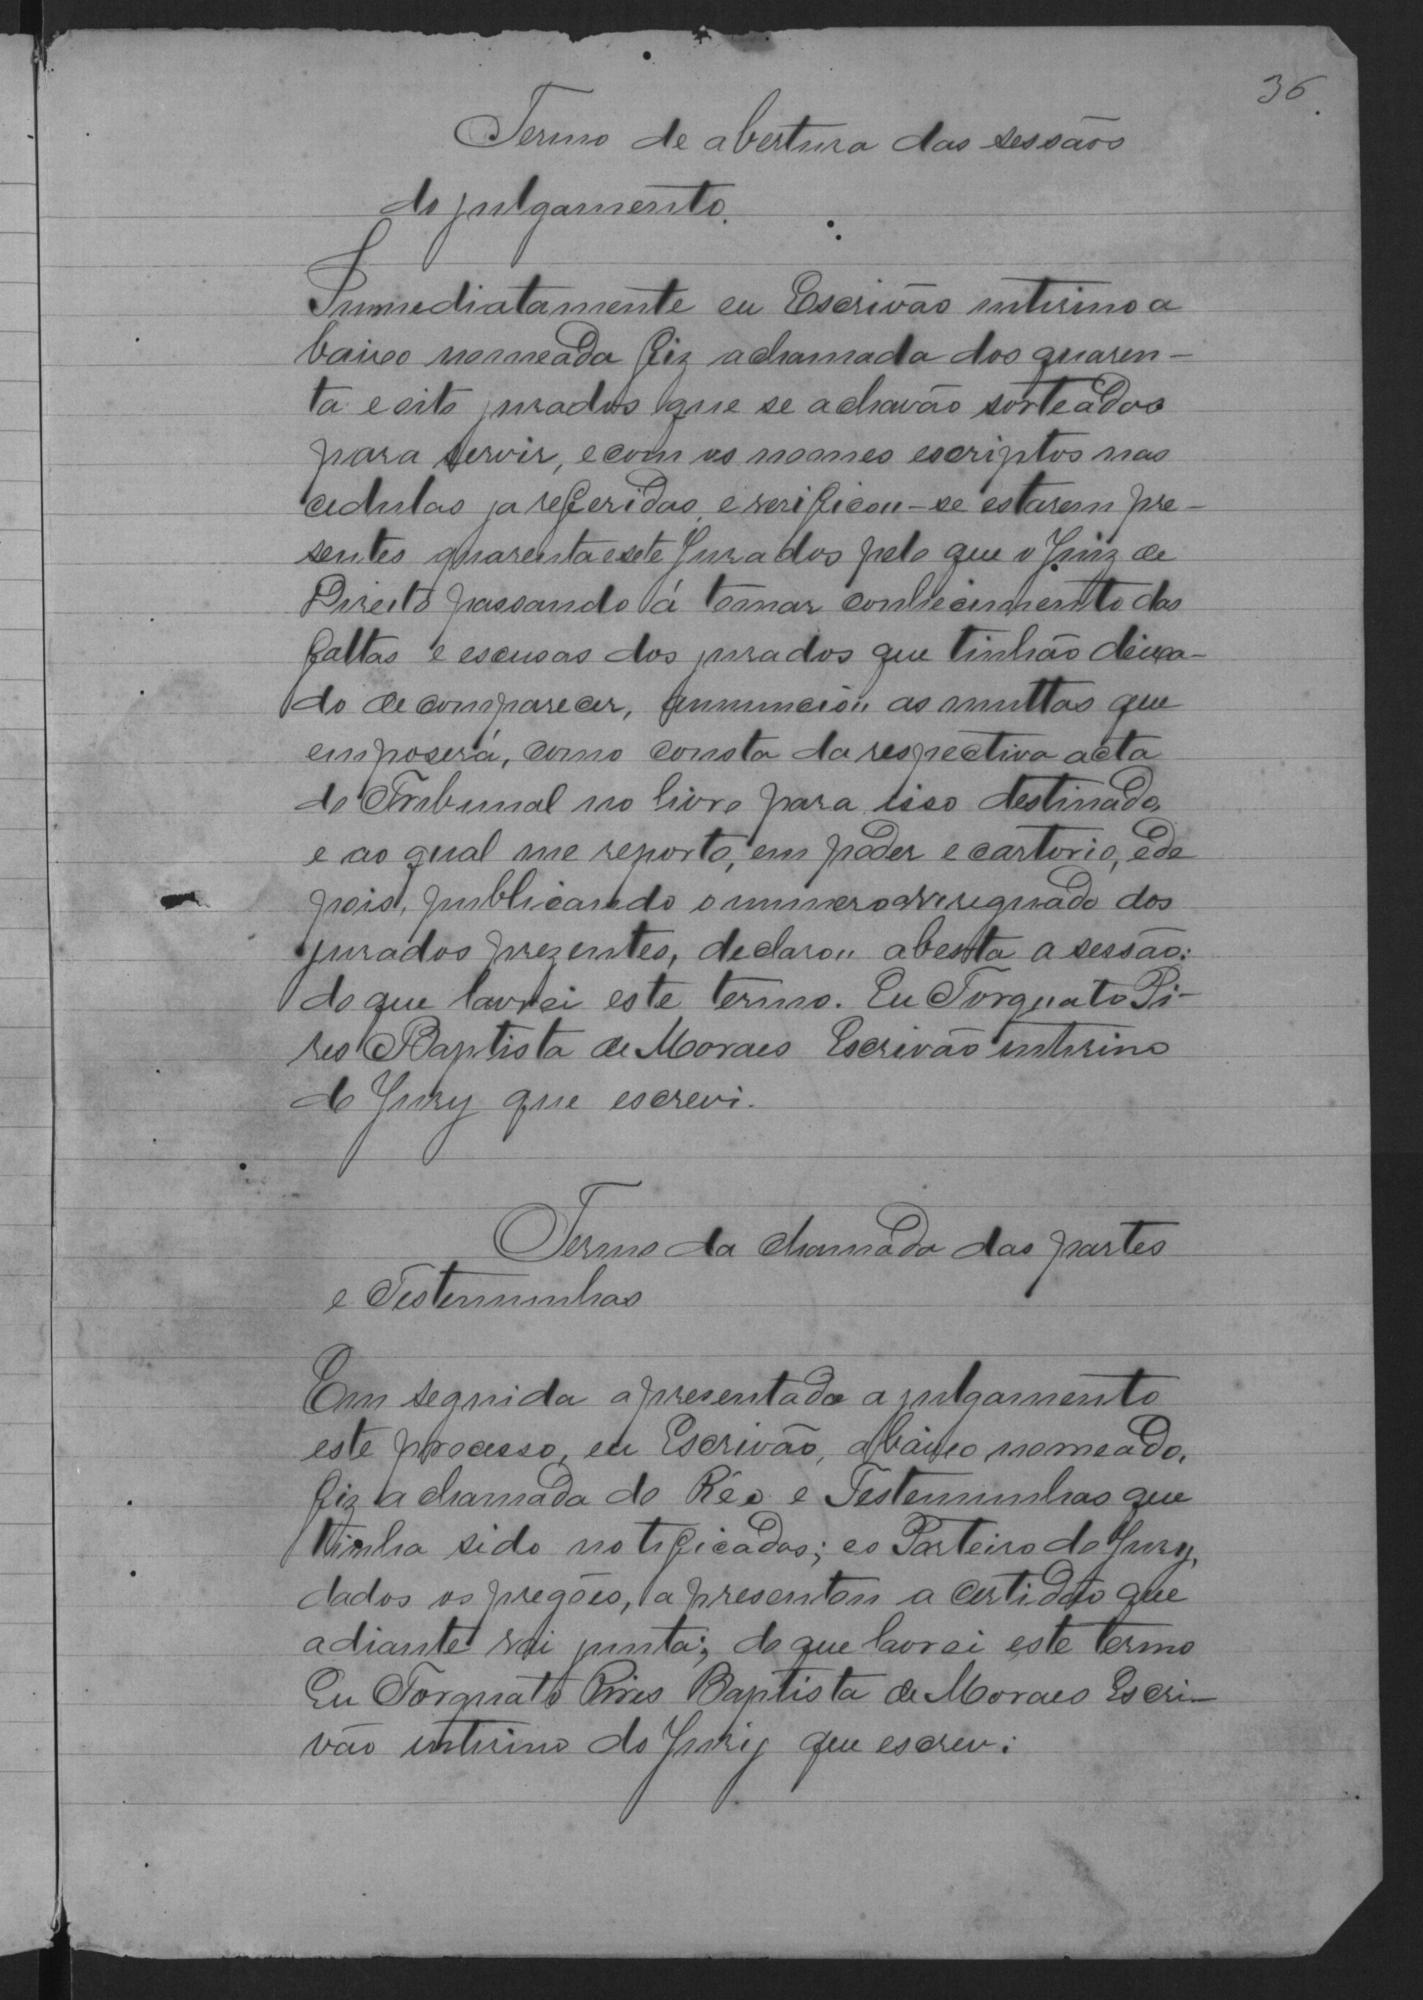 36
Termo de abertura das sessãos
do julgamento.
Immediatamente eu Escrivão interino a
baixo nomeado fiz a chamada dos quaren-
ta e oito jurados que se achavão sorteados
para servir, e com os nomes escriptos nas
cedulas ja referidas, e verificou-se estarem pre-
sentes quarenta e sete Jurados pelo que o Juiz de
Direito passando á tomar conhecimento das
faltas e escusas dos jurados que tinhão deixa-
do de comparecer, annunciou as multas que
emposerá, como consta da respectiva acta
do Tribunal no livro para isso destinado
e ao qual me reporto, em poder e cartorio, e de
pois, publicando o numero dos
jurados prezentes, declarou aberta a sessão:
do que lavrei este termo. Eu Torquato Pi-
res Baptista de Moraes Escrivão interino
do Jury que escrevi.
Termo da chamada das partes
e Testemunhas
Em seguida apresentado a julgamento
este processo, eu Escrivão, abaixo nomeado,
fiz a chamada do Réo e Testemunhas que
tinha sido notificados; e o Porteiro do Jury,
dados os pregões, apresentou a certidão que
adiante vai junta; do que lavrei este termo
Eu Torquato Pires Baptista de Moraes Escri-
vão interino do Jury que escrevi